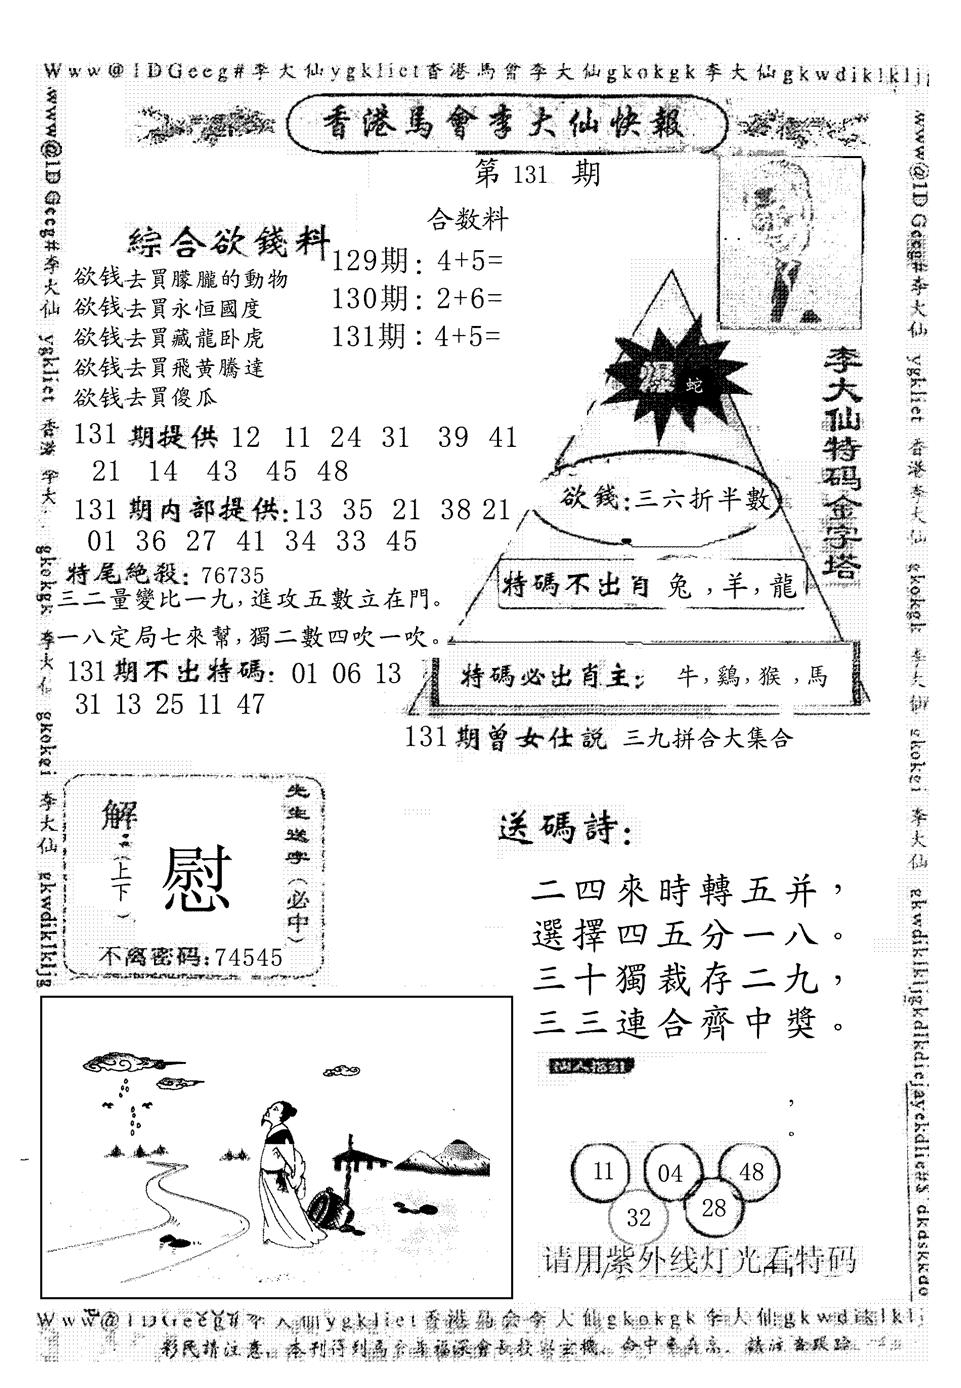 Www@1DGecg#李大仙ygklict香港馬會李大仙gkokgk李大仙gkwdiklkljg
香港馬會李大仙快報
第 131 期
合数料
綜合欲錢料
129期: 4+5=
130期: 2+6=
131期: 4+5=
欲钱去買朦朧的動物
欲钱去買永恒國度
欲钱去買藏龍卧虎
欲钱去買飛黃騰達
欲钱去買傻瓜
131 期提供 12 11 24 31 39 41
21 14 43 45 48
131 期内部提供:13 35 21 38 21
01 36 27 41 34 33 45
特尾絶殺: 76735
三二量變比一九,進攻五數立在門。
一八定局七來幫,獨二數四吹一吹。
131 期不出特碼: 01 06 13
31 13 25 11 47
爆 蛇
欲錢:三六折半數
特碼不出肖 兔,羊,龍
特碼必出肖主: 牛,鷄,猴,馬
李大仙特码金字塔
131期曾女仕説 三九拼合大集合
解:(上下)
慰
先生送字(必中)
不离密码:74545
送碼詩:
二四來時轉五并,
選擇四五分一八。
三十獨裁存二九,
三三連合齊中獎。
,
。
11 04 48
32 28
请用紫外线灯光看特码
www@1DGecg#李大仙 ygklict 香港 李大 gkokgk 李大仙 gkokei 李大仙 gkwdiklkljg
www@1DGecg#李大仙 ygklict 香港李大仙 gkokgk 李大仙 gkokei 李大仙 gkwdiklkljgkdlkdiejayekdlie#$ dkdskkdo
Www@1DGecg#李大仙ygklict香港馬会李大仙gkokgk李大仙gkwdiklklj
彩民請注意,本刊得到馬